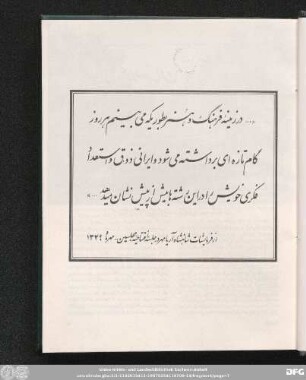 «... در زمینه فرهنگ و هنر بطوریکه می بینیم هر روز
گام تازه ای برداشته می شود و ایرانی ذوق و استعداد
فکری خویش را در این رشته ها بیش از پیش نشان میدهد ...»
از فرمایشات شاهنشاه آریامهر در جلسه افتتاحیه مجلسین - مهر ۱۳۴۶